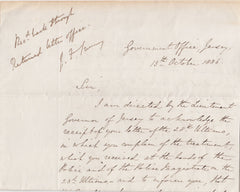 Rec'd back through
Returned letter office.
Government Office, Jersey,
13th October 1886
Sir,
I am directed by the Lieutenant
Governor of Jersey to acknowledge the
receipt of your letter of the 28th Ultimo,
in which you complain of the treatment,
which you received at the hands of the
Police and of the Police Magistrate on the
23rd Ultimo and to inform you, that